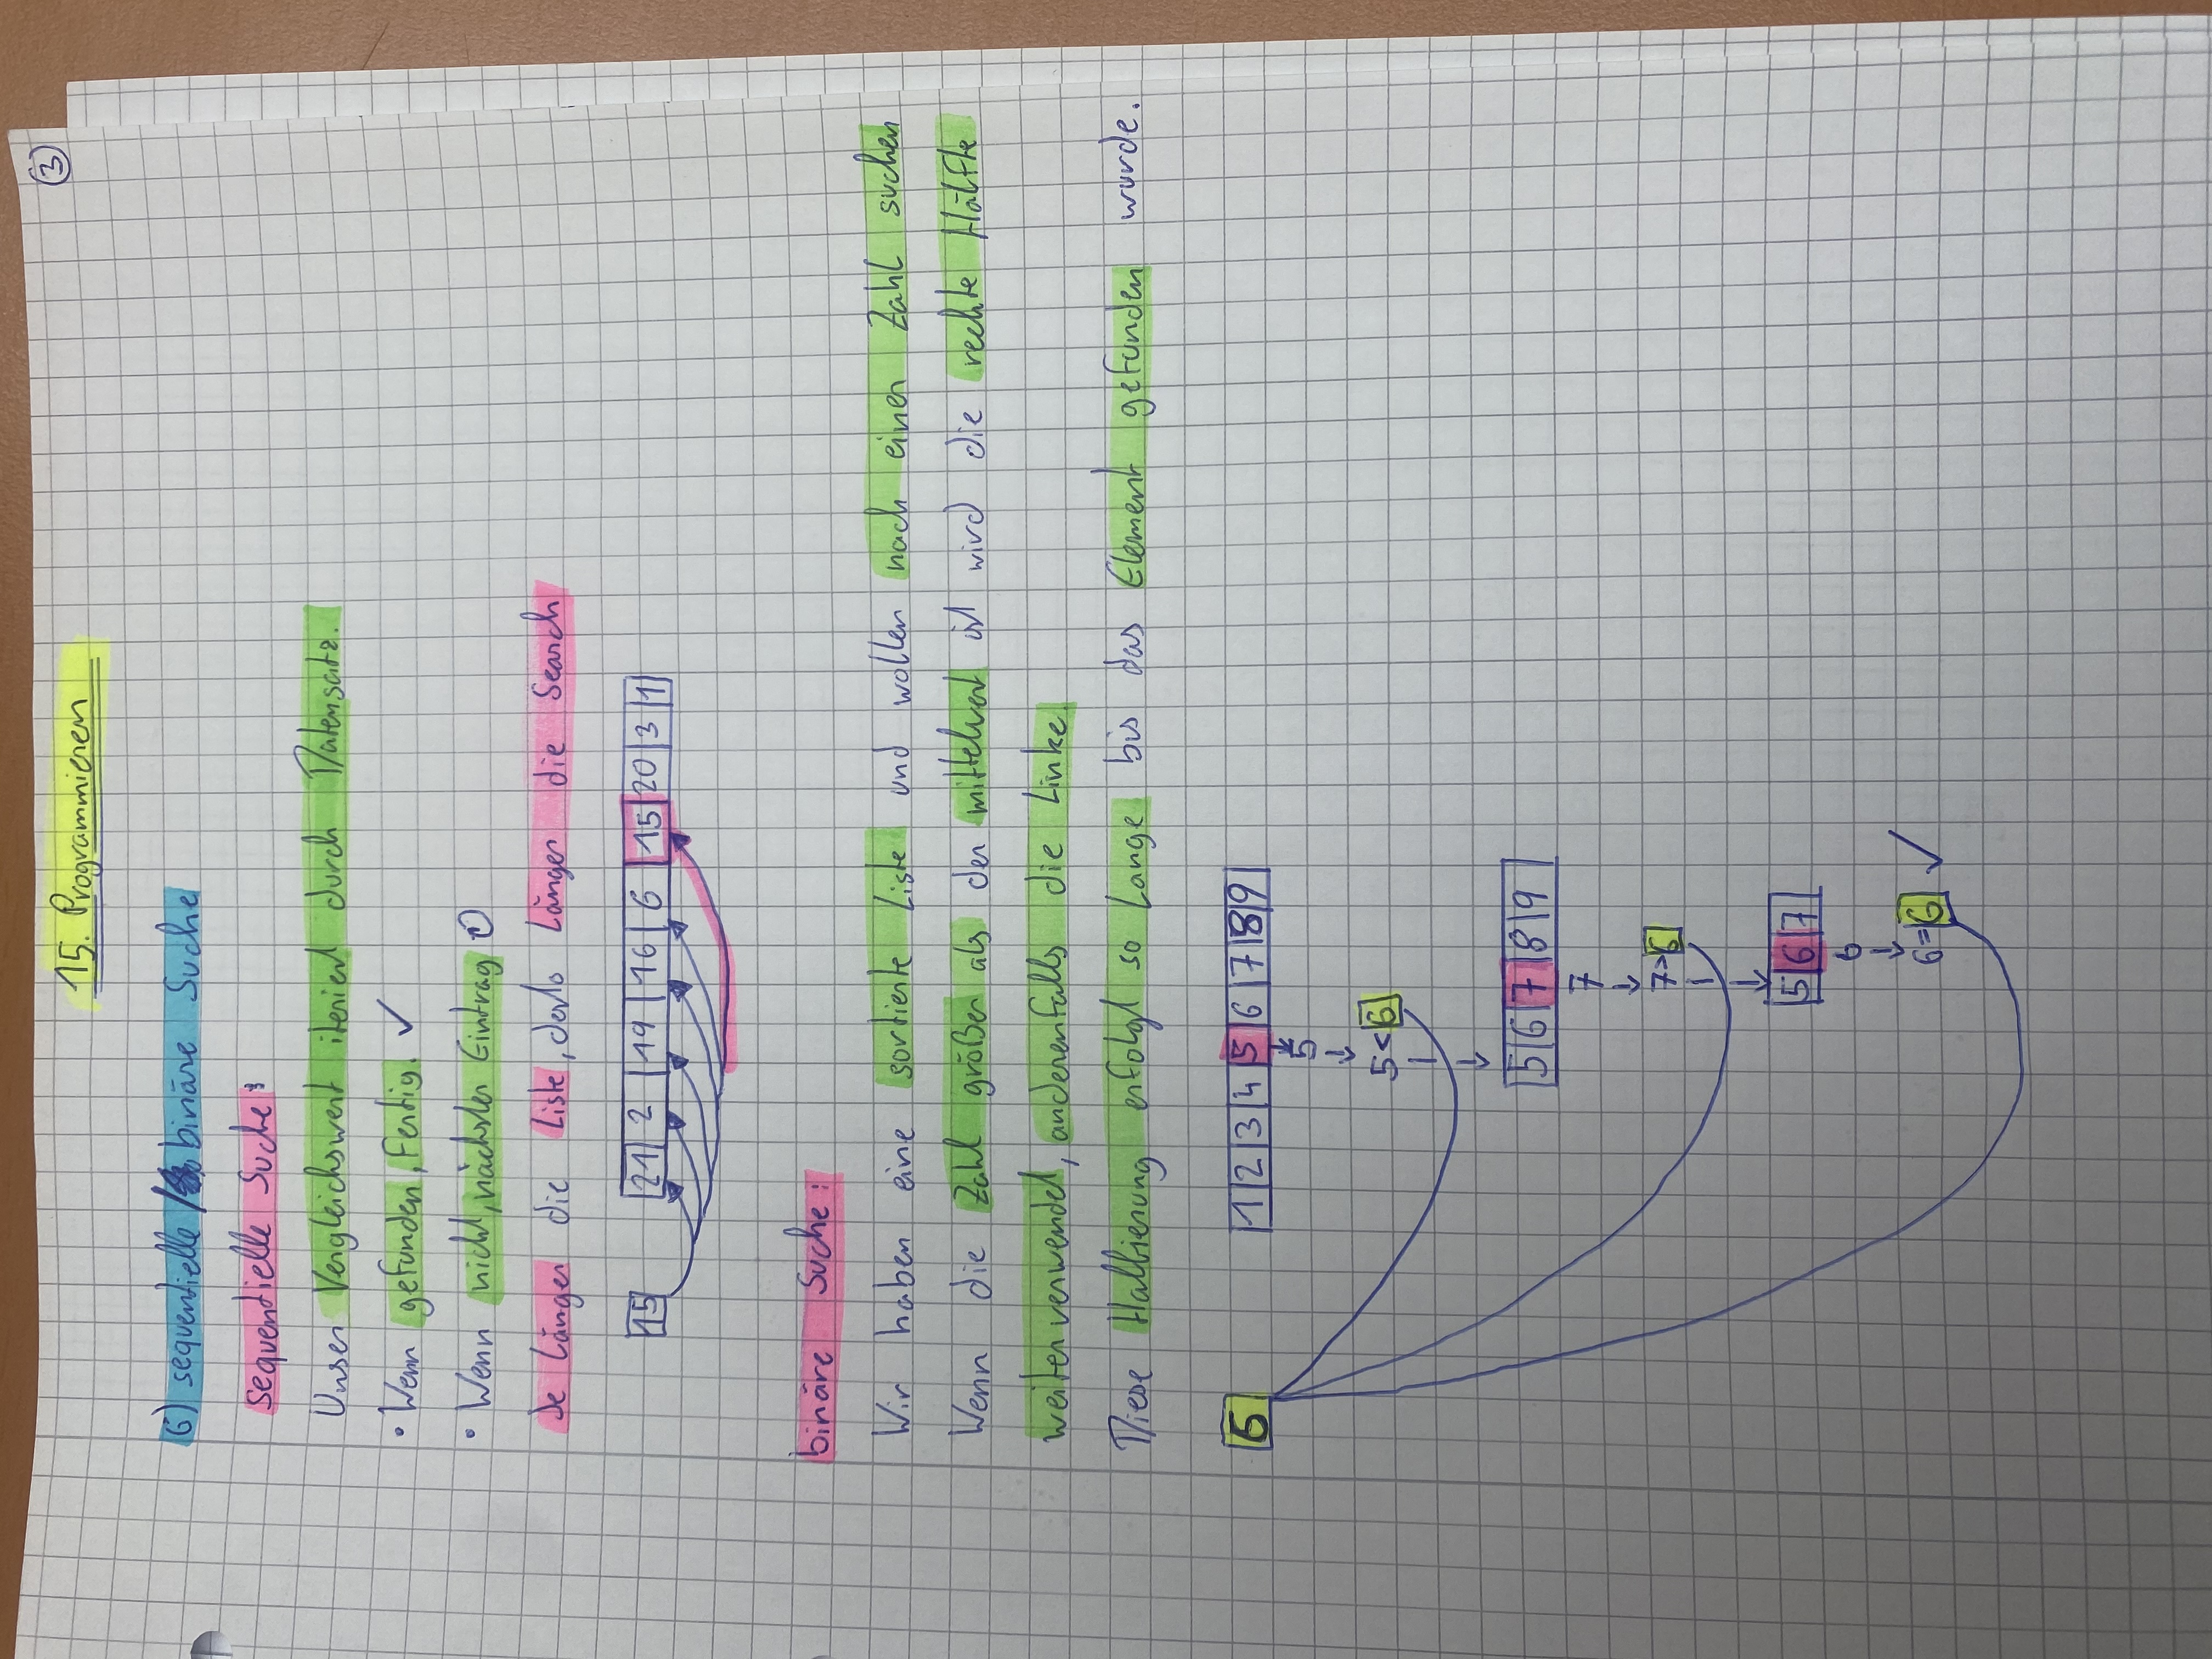 3
15. Programmieren
6) sequentielle / binäre Suche
sequentielle Suche:
Unser Vergleichswert iteriert durch Datensatz.
• Wenn gefunden, Fertig. ✓
• Wenn nicht, nächster Eintrag
Je Länger die Liste, desto Länger die Search
15 21 2 19 16 6 15 20 3 1
binäre Suche:
Wir haben eine sortierte Liste und wollen nach einer Zahl suchen
Wenn die Zahl größer als der mittelwert ist wird die rechte Hälfte
weiter verwendet, anderenfalls die Linke.
Diese Halbierung erfolgt so Lange bis das Element gefunden wurde.
6 1 2 3 4 5 6 7 8 9
5
5 < 6
5 6 7 8 9
7
7 > 6
5 6 7
6
6 = 6 ✓